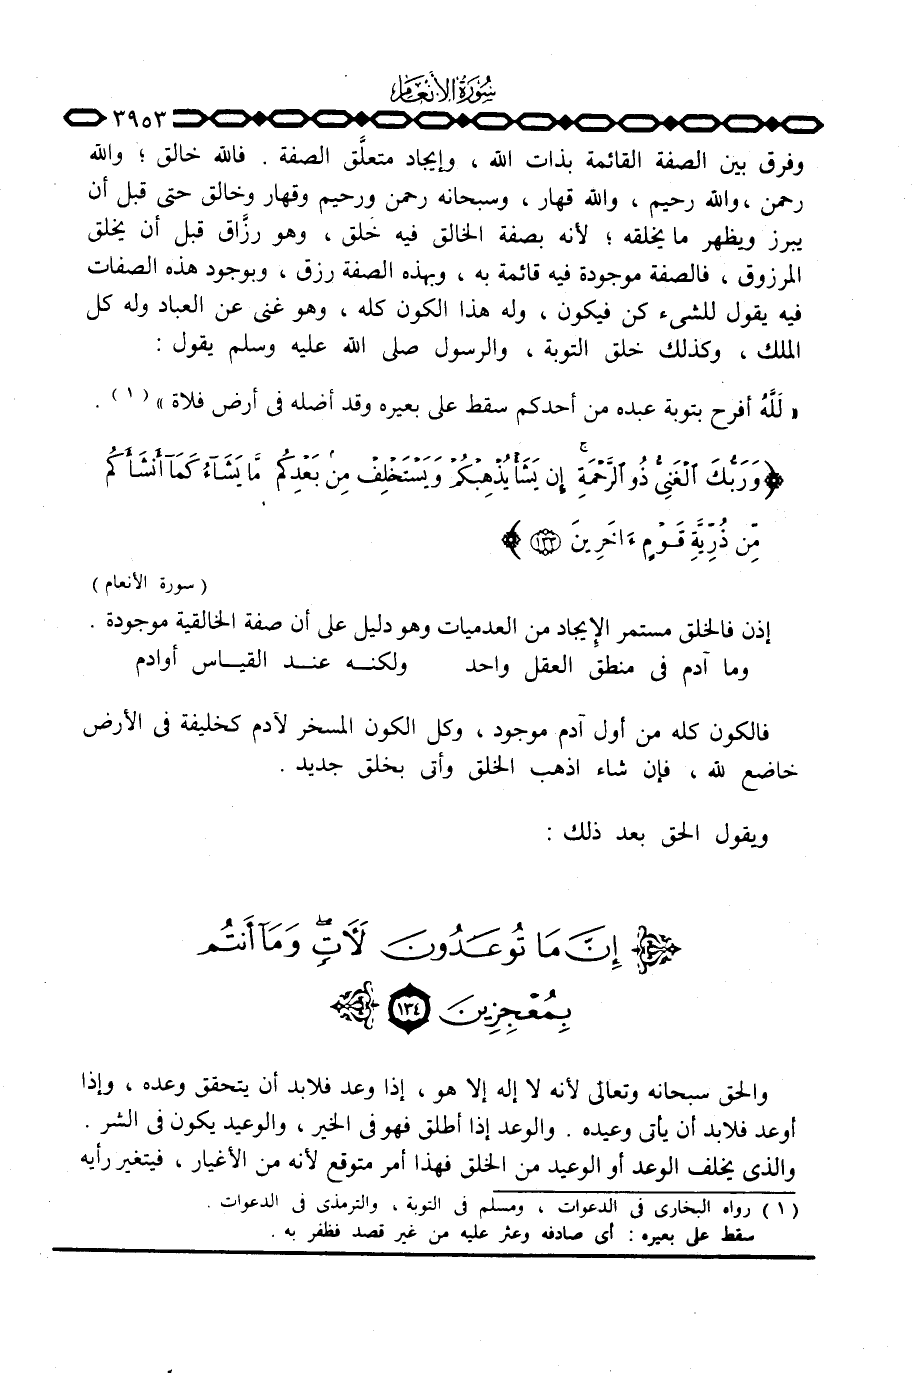 سُورَةُ الأَنْعَامِ
٣٩٥٣
وفرق بين الصفة القائمة بذات الله ، وإيجاد متعلَّق الصفة . فالله خالق ؛ والله
رحمن ، والله رحيم ، والله قهار ، وسبحانه رحمن ورحيم وقهار وخالق حتى قبل أن
يبرز ويظهر ما يخلقه ؛ لأنه بصفة الخالق فيه خلق ، وهو رزَّاق قبل أن يخلق
المرزوق ، فالصفة موجودة فيه قائمة به ، وبهذه الصفة رزق ، وبوجود هذه الصفات
فيه يقول للشىء كن فيكون ، وله هذا الكون كله ، وهو غنى عن العباد وله كل
الملك ، وكذلك خلق التوبة ، والرسول صلى الله عليه وسلم يقول :
« لَلَّهُ أفرح بتوبة عبده من أحدكم سقط على بعيره وقد أضله فى أرض فلاة » (١) .
﴿ وَرَبُّكَ ٱلْغَنِىُّ ذُو ٱلرَّحْمَةِ ۚ إِن يَشَأْ يُذْهِبْكُمْ وَيَسْتَخْلِفْ مِنۢ بَعْدِكُم مَّا يَشَآءُ كَمَآ أَنشَأَكُم
مِّن ذُرِّيَّةِ قَوْمٍ ءَاخَرِينَ ١٣٣ ﴾
( سورة الأنعام )
إذن فالخلق مستمر الإِيجاد من العدميات وهو دليل على أن صفة الخالقية موجودة .
وما آدم فى منطق العقل واحد ولكنــه عنــد القيــاس أوادم
فالكون كله من أول آدم موجود ، وكل الكون المسخر لآدم كخليفة فى الأرض
خاضع لله ، فإن شاء اذهب الخلق وأتى بخلق جديد .
ويقول الحق بعد ذلك :
﴿ إِنَّ مَا تُوعَدُونَ لَأَتٍ ۖ وَمَآ أَنتُم
بِمُعْجِزِينَ ١٣٤ ﴾
والحق سبحانه وتعالى لأنه لا إله إلا هو ، إذا وعد فلابد أن يتحقق وعده ، وإذا
أوعد فلابد أن يأتى وعيده . والوعد إذا أطلق فهو فى الخير ، والوعيد يكون فى الشر .
والذى يخلف الوعد أو الوعيد من الخلق فهذا أمر متوقع لأنه من الأغيار ، فيتغير رأيه
(١) رواه البخارى فى الدعوات ، ومسلم فى التوبة ، والترمذى فى الدعوات .
سقط على بعيره : أى صادفه وعثر عليه من غير قصد فظفر به .